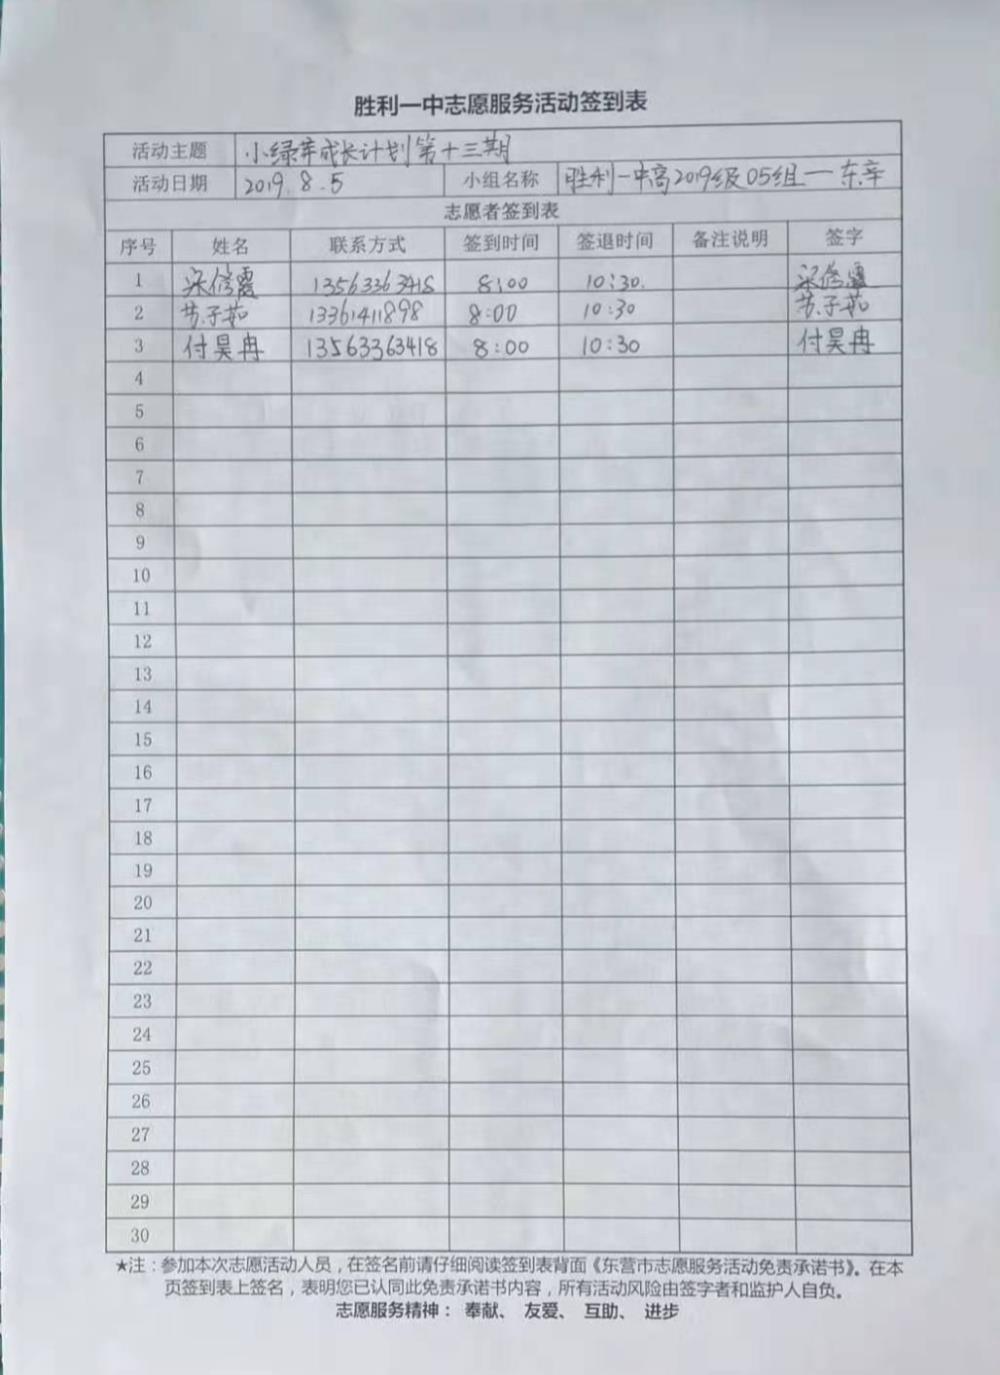 胜利一中志愿服务活动签到表
活动主题 小绿芽成长计划第十三期
活动日期 2019.8.5 小组名称 胜利一中高2019级05组一东辛
志愿者签到表
序号 姓名 联系方式 签到时间 签退时间 备注说明 签字
1 宋修霞 13563363418 8:00 10:30. 宋修霞
2 苏子茹 13361411898 8:00 10:30 苏子茹
3 付昊冉 13563363418 8:00 10:30 付昊冉
4
5
6
7
8
9
10
11
12
13
14
15
16
17
18
19
20
21
22
23
24
25
26
27
28
29
30
★注：参加本次志愿活动人员，在签名前请仔细阅读签到表背面《东营市志愿服务活动免责承诺书》。在本
页签到表上签名，表明您已认同此免责承诺书内容，所有活动风险由签字者和监护人自负。
志愿服务精神： 奉献、 友爱、 互助、 进步